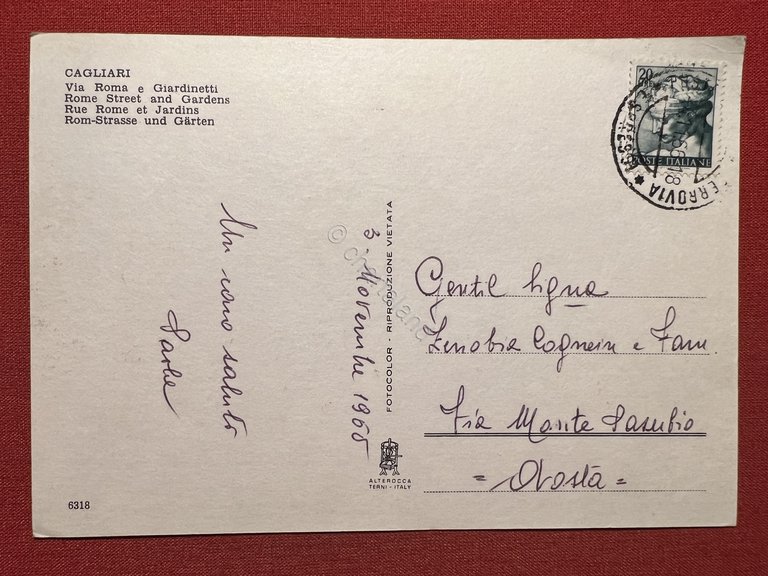 CAGLIARI
Via Roma e Giardinetti
Rome Street and Gardens
Rue Rome et Jardins
Rom-Strasse und Gärten
20
POSTE ITALIANE
FERROVIA
Un caro saluto
3 - Novembre 1965
FOTOCOLOR - RIPRODUZIONE VIETATA
Gentil Sigra
Zenobia Cognein e Fam
Via Monte Pasubio
= Aosta =
ALTEROCCA
TERNI - ITALY
6318